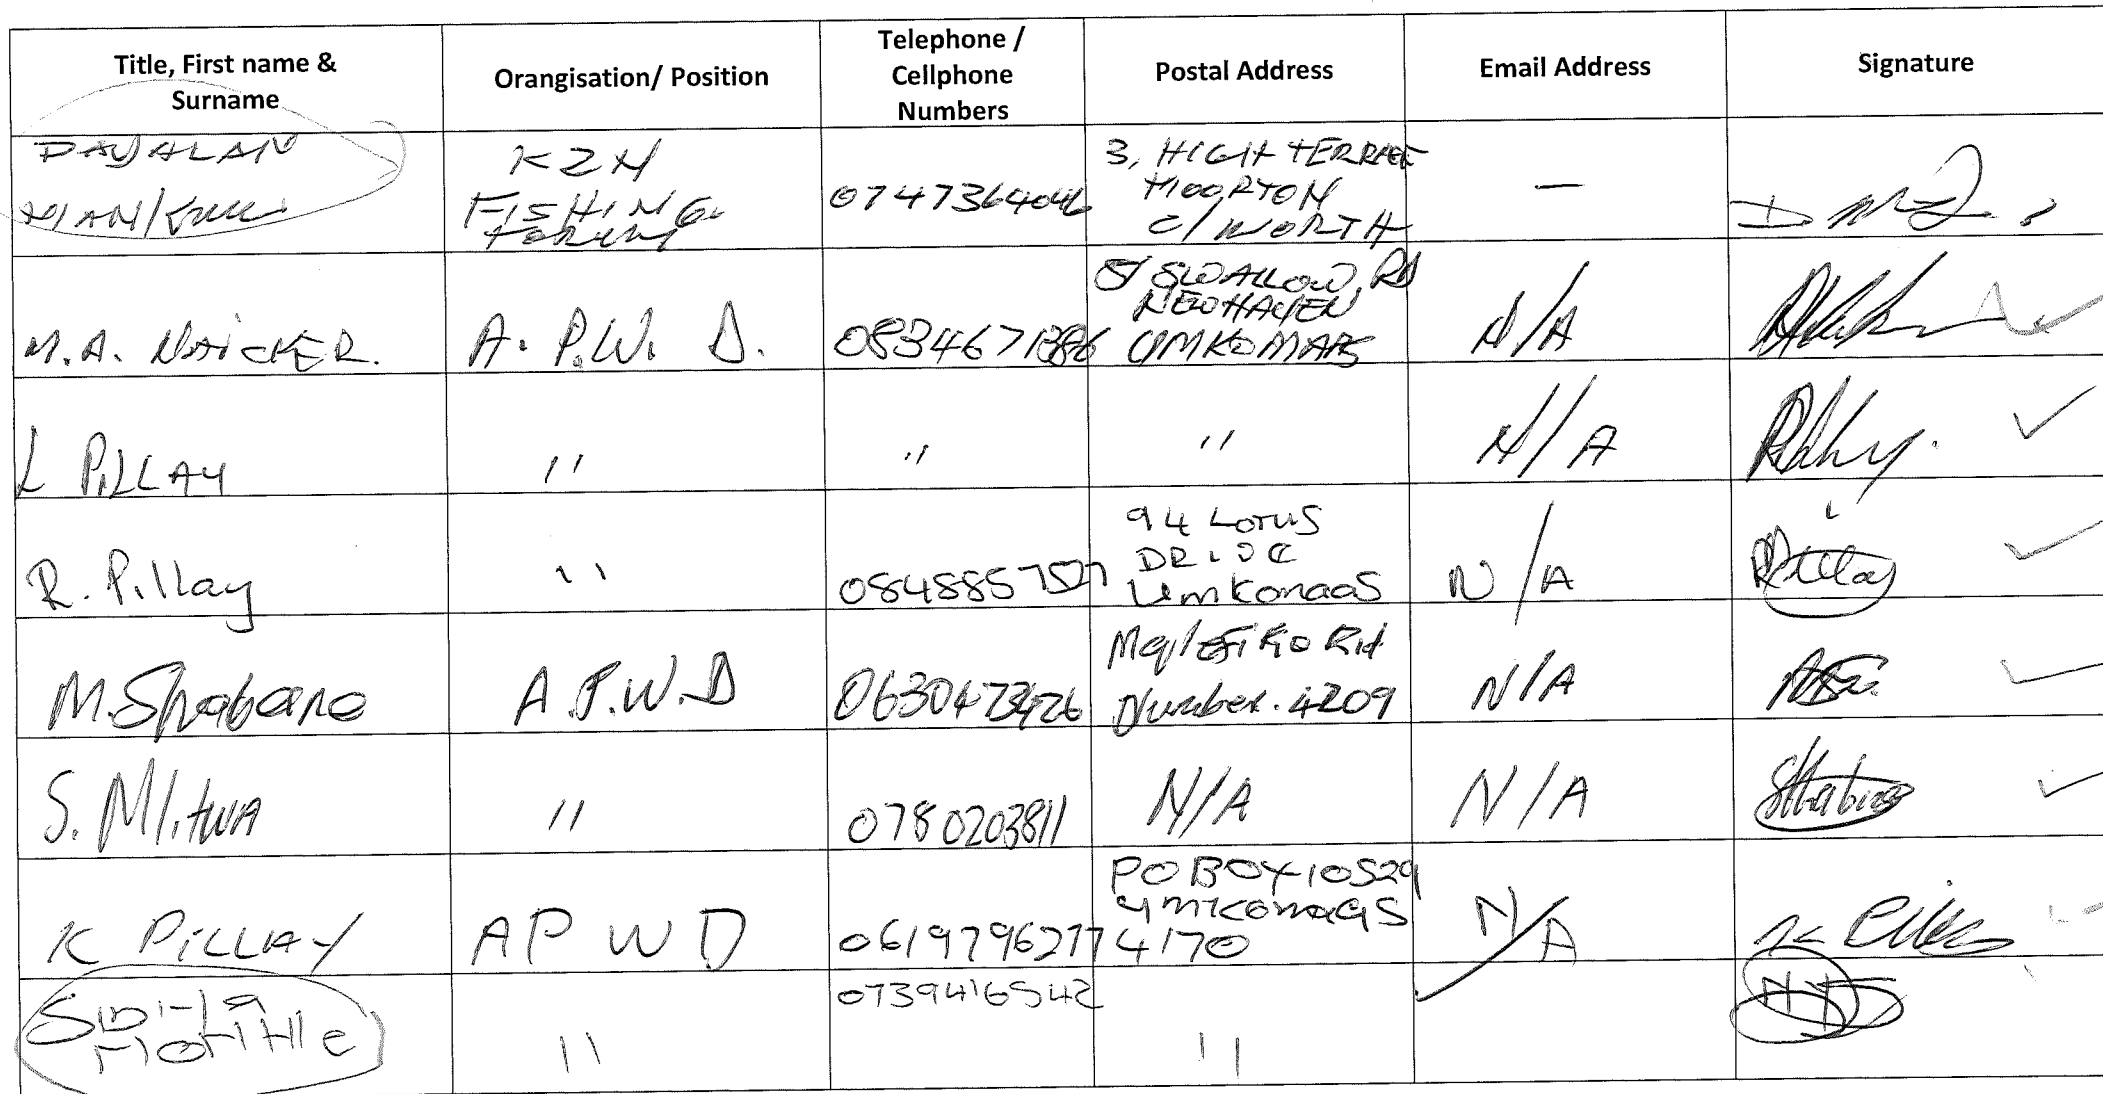 Title, First name & Surname
Orangisation/ Position
Telephone / Cellphone Numbers
Postal Address
Email Address
Signature
DAYALAN
KZN
FISHING
FORUM
0747364046
3, HIGH TERRACE
MOORTON
C/WORTH
—
M.A. NAICKER.
A. P.W. D.
SWALLOW RD
NEWHAVEN
UMKOMAAS
N/A
L PILLAY
"
"
"
N/A
R. Pillay
"
084885
94 Lotus
DRIVE
Umkomaas
N/A
Pillay
M. Shabane
A.P.W.D
Number. 4209
N/A
S. Mlitwa
"
0780203811
N/A
N/A
K PILLAY
APWD
0619796217
PO BOX 10529
Umkomaas
4170
N/A
"
0739416542
"